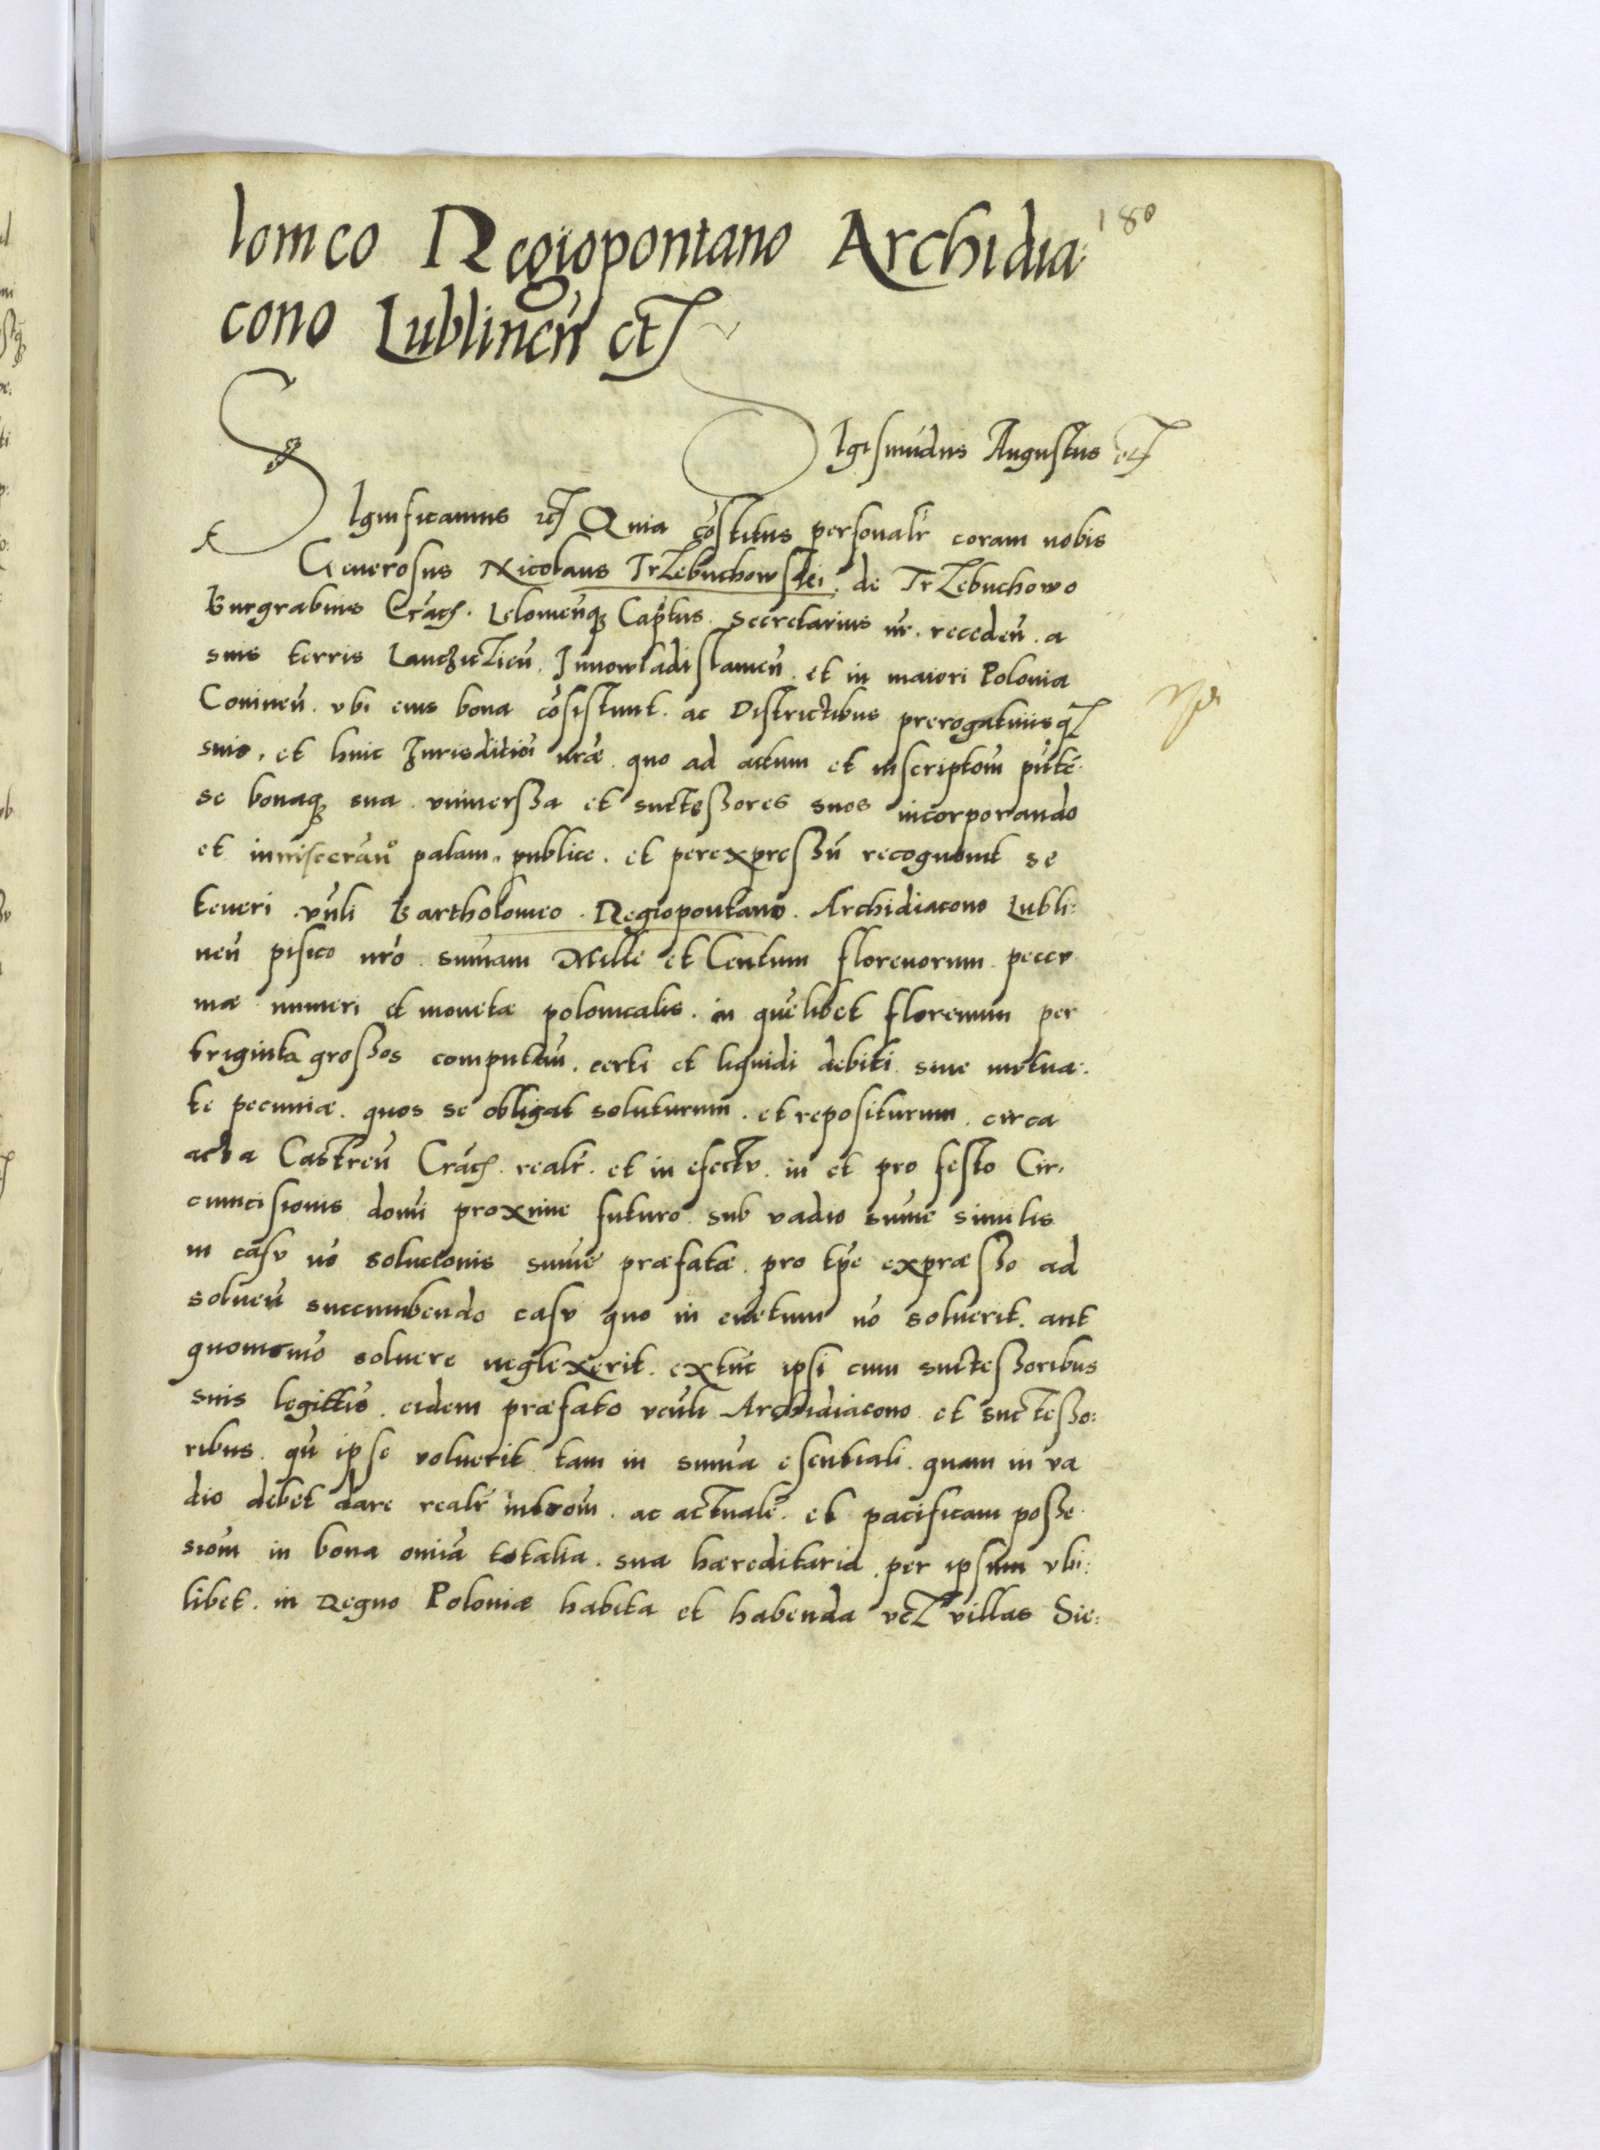 180
lomeo Regiopontano Archidia:
cono Lublineñ etc
Sigismũdus Augustus etc
Significamus etc Quia cõstitus personalr coram nobis
Generosus Nicolaus Trzebuchowski de Trzebuchowo
Burgrabius Crac. Lelomeñq Captus. Secretarius nr. recedeñ. a
suis terris Lancziczieñ. Junowladislauieñ. et in maiori Polonia
Conineñ. vbi eius bona cõsistunt. ac Districtibus prerogatiuisq
suis. et huic Jurisditioi nrae. quo ad actum et inscriptom pñte.
se bonaq sua vniuersa et successores suos incorporando
et inuiscerañº palam. publice. et per expressũ recognouit se
teneri vñli Bartholomeo. Regiopontano. Archidiacono Lubli:
neñ pisico nro. sumam Mille et Centum florenorum peccu
niae numeri et monetae polonicalis. in quelibet florenum per
triginta grossos computañ. certi et liquidi debiti siue mutua:
te pecuniae. quos se obligat soluturum. et repositurum. circa
acta Castreñ Crac. realr. et in efectu. in et pro festo Cir,
cumcisionis domi proxime futuro. sub vadio sume similis
in casu nõ soluctonis sume praefatae. pro tpe expraesso ad
solueñ succumbendo casu quo in euẽtum nõ soluerit. aut
quouismõ soluere neglexerit. extũc ipsi cum successoribus
suis legittis. eidem praefato vñli Archidiacono et successo:
ribus. qũ ipse voluerit tam in suma esentiali. quam in va
dio debet dare realr introm. ac actualẽ. et pacificam posse
siom in bona omia totalia. sua haereditaria. per ipsum vbi:
libet. in Regno Poloniae habita et habenda vcz villas Sie: